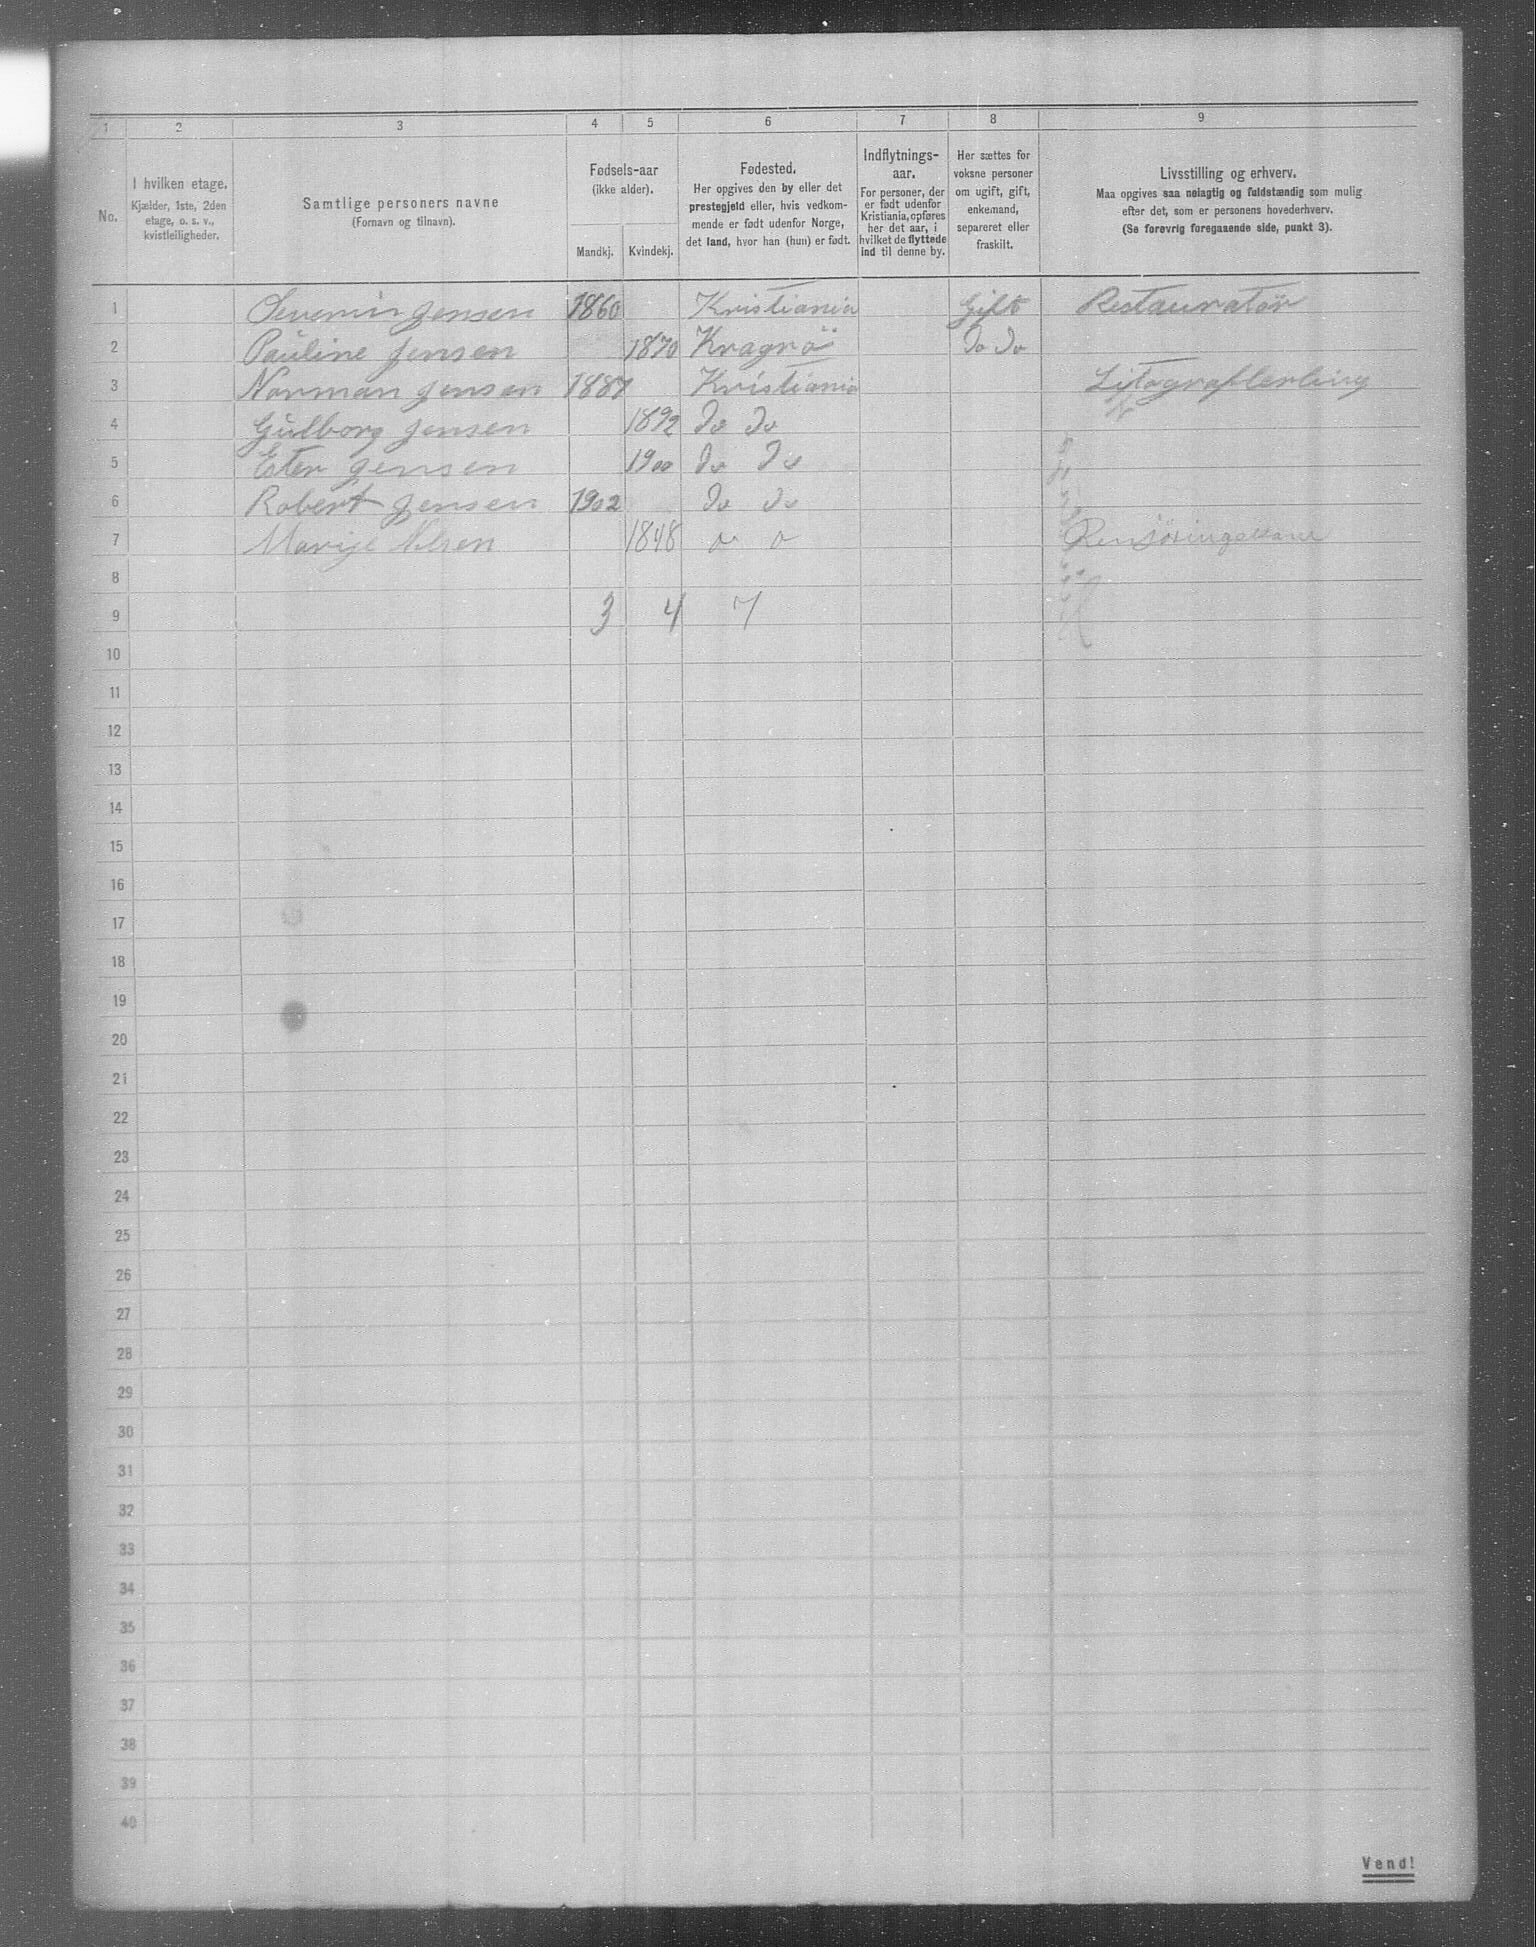 1 2 3 4 5 6 7 8 9
No.
I hvilken etage.
Kjælder, 1ste, 2den
etage, o. s. v.,
kvistleiligheder.
Samtlige personers navne
(Fornavn og tilnavn).
Fødsels-aar
(ikke alder).
Mandkj. Kvindekj.
Fødested.
Her opgives den by eller det
prestegjeld eller, hvis vedkom-
mende er født udenfor Norge,
det land, hvor han (hun) er født.
Indflytnings-
aar.
For personer, der
er født udenfor
Kristiania, opføres
her det aar, i
hvilket de flyttede
ind til denne by.
Her sættes for
voksne personer
om ugift, gift,
enkemand,
separeret eller
fraskilt.
Livsstilling og erhverv.
Maa opgives saa nøiagtig og fuldstændig som mulig
efter det, som er personens hovederhverv.
(Se forøvrig foregaaende side, punkt 3).
1 Severin Jensen 1860 Kristiania Gift Restauratør
2 Pauline Jensen 1870 Kragrö Do Do
3 Norman Jensen 1887 Kristiania
4 Gulborg Jensen 1892 Do Do
5 Ester Jensen 1900 Do Do
6 Robert Jensen 1902 Do Do
7 Nilsen 1848
8
9 3 4 7
10
11
12
13
14
15
16
17
18
19
20
21
22
23
24
25
26
27
28
29
30
31
32
33
34
35
36
37
38
39
40
Vend!